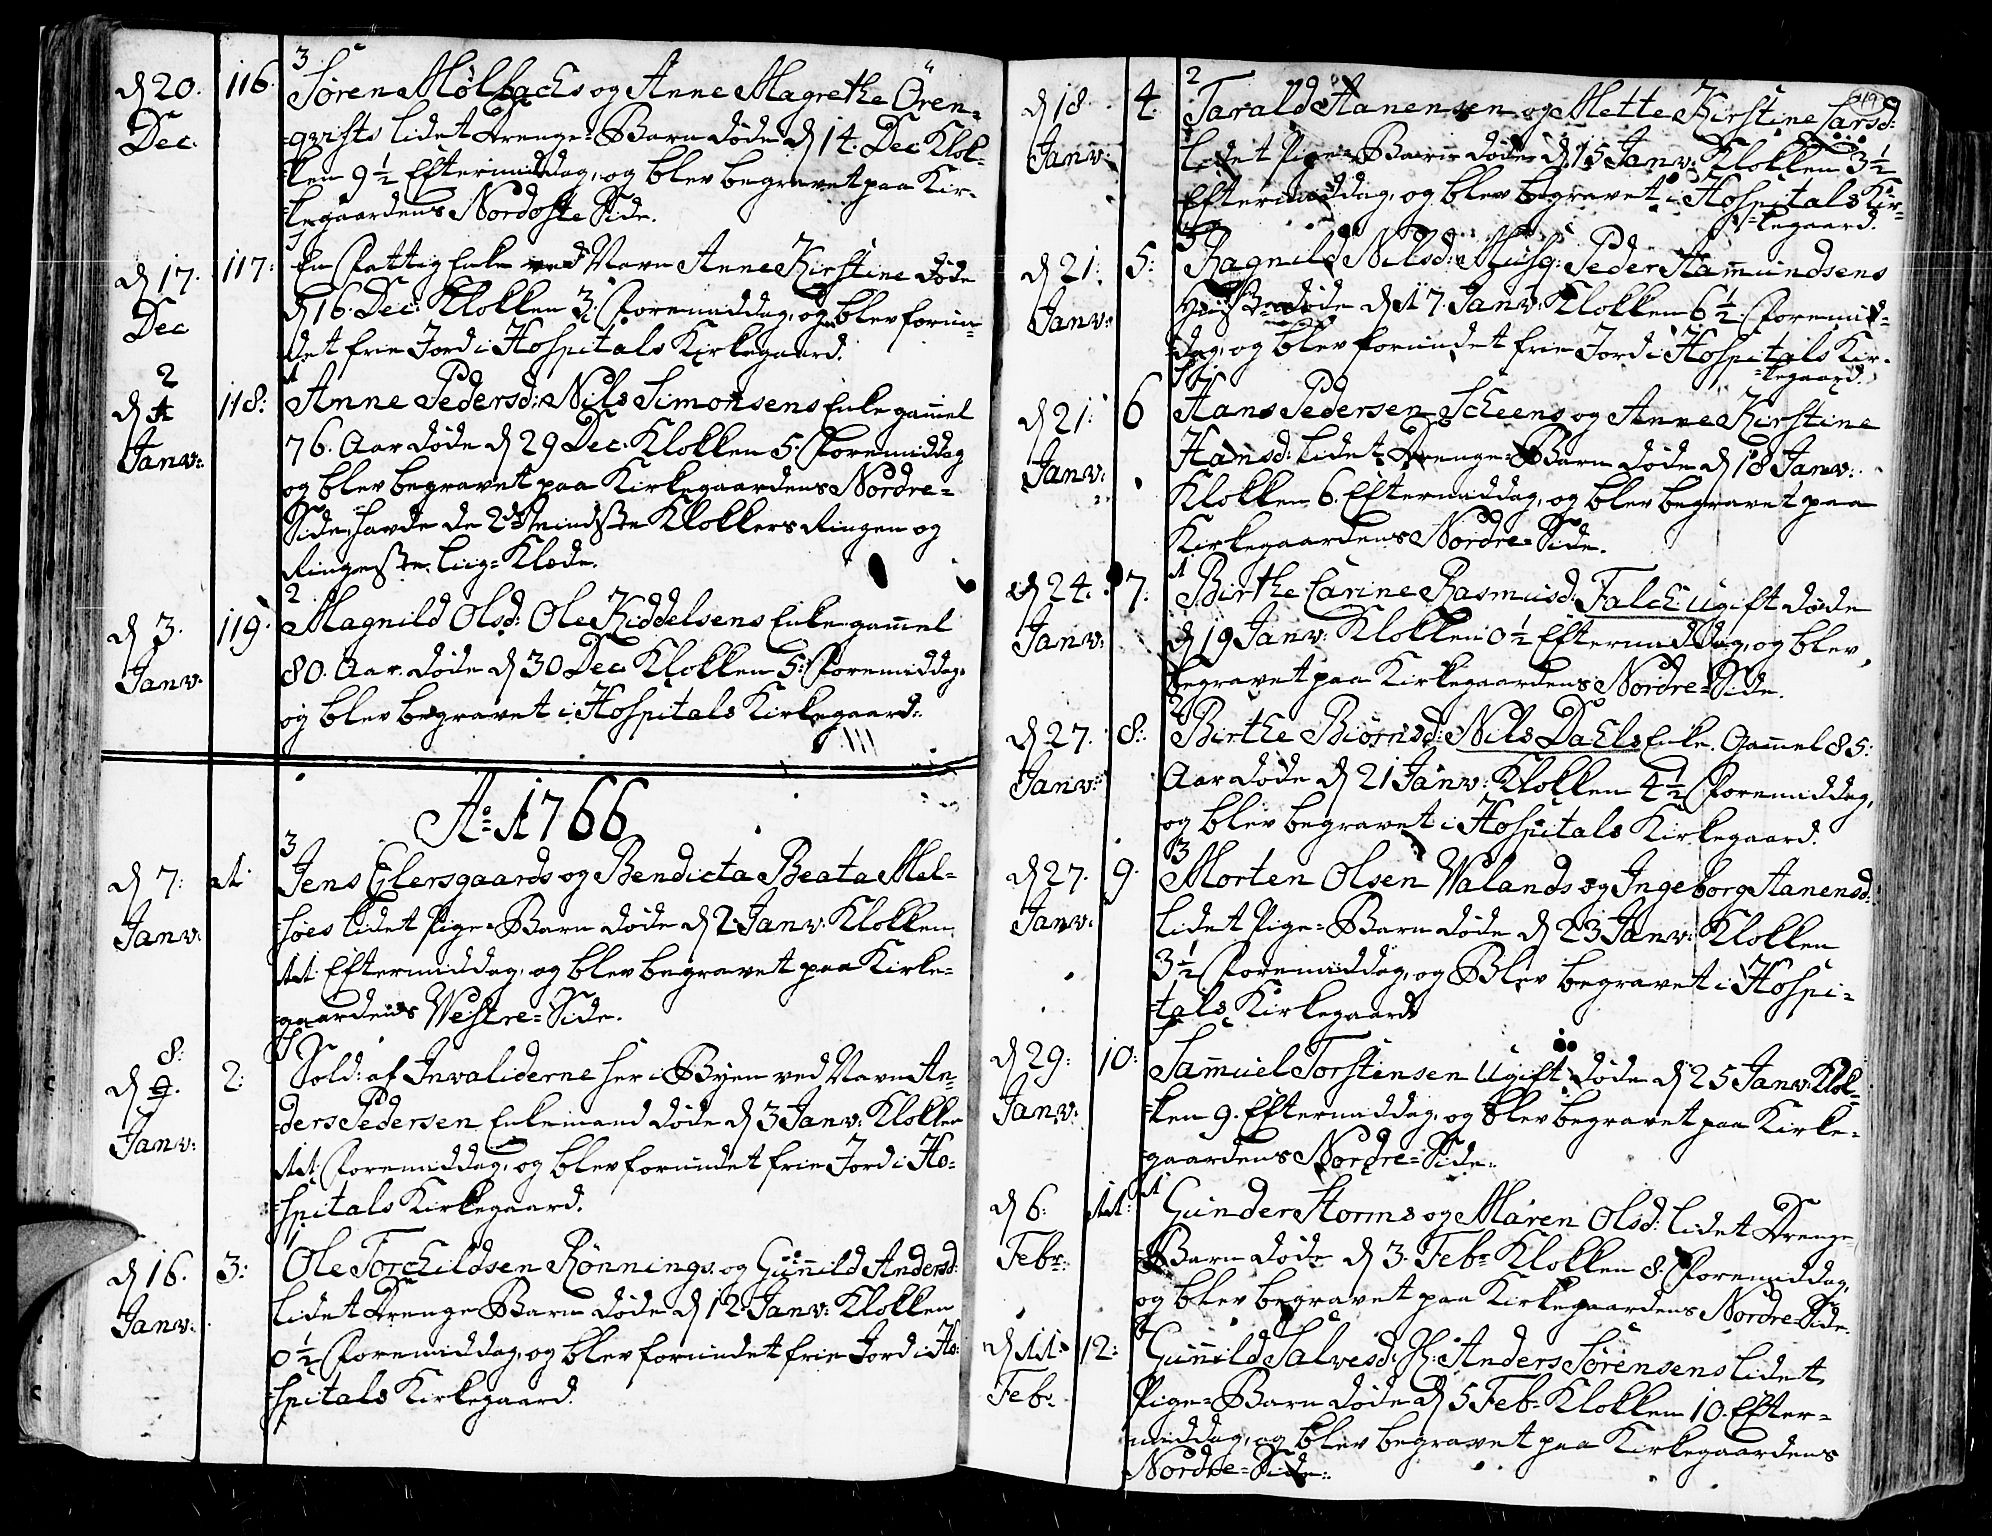 d 20. Dec: 116. 3
Søren Mølbachs og Anne Magrethe Ören-
=qvists lidet Drenge=Barn døde d 14. Dec: Klok-
=ken 9 1/2 Eftermiddag, og blev begravet paa Kir-
=kegaardens Nordoste Side.
d 17. Dec 117:
En Fattig Enke ved Navn Anne Kirstine døde
d 16. Dec: Klokken 3. Foremiddag, og blev forun-
=det frie Jord i Hospitals Kirkegaard.
d 2 Janv: 118: 1
Anne Pedersd: Nils Simonsens Enke gamel
76. Aar døde d 29 Dec: Klokken 5. Foremiddag
og blev begravet paa Kirkegaardens Nordre=
Side, havde de 2de Mindste Klokkers Ringen og
Ringeste Liig=Klæde.
d 3. Janv. 119: 2
Magnild Olsd: Ole Kiddelsens Enke gamel
80. Aar. døde d 30 Dec Klokken 5. Foremiddag.
og blev begravet i Hospitals Kirkegaard:
Ao 1766
d 7: Janv: 1. 3
Jens Elersgaards og Bendicta Beata Mel-
=søes lidet Pige=Barn døde d 2 Janv: Klokken
11. Eftermiddag, og blev begravet paa Kirke=
gaardens Vestre=Side.
d 8: Janv: 2:
Sold: af Invaliderne her i Byen ved Navn An-
=ders Pedersen Enkemand døde d 3 Janv: Klokken
11. Foremiddag, og blev forundet frie Jord i Ho=
=spitals Kirkegaard.
d 16. Janv: 3: 1
Ole Torchildsen Rønnings og Gunnild Andersd:
lidet Drenge Barn døde d 12 Janv: Klokken
0 1/2 Foremiddag, og blev forundet frie Jord i Ho:
=spitals Kirkegaard.
49
d 18. Janv: 4. 2
Tarald Aanensen og Mette Kirstine Larsd:
Lidet Pige=Barn døde d 15 Janv: Klokken 3 1/2
Eftermiddag, og blev begravet i Hospitals Kir-
=kegaard.
d 21: Janv: 5:
Ragnild Nilsd: Musq: Peder Aamundsens
døde d 17. Janv: Klokken 6 1/2. Foremid=
=dag, og blev forundet frie Jord i Hospitals Kir-
=kegaard.
d 21: Janv: 6
Hans Pedersen Scheens og Anne Kirstine
Hansd: lidet Drenge=Barn døde d 18 Janv:
Klokken 6. Eftermiddag, og blev begravet paa
Kirkegaardens Nordre=Side.
d 24. Janv: 7: 1
Birthe Carine Rasmusd: Falch Ugift døde
d 19 Janv: Klokken 0 1/2 Eftermiddag, og blev
begravet paa Kirkegaardens Nordre=Side.
d 27. Janv: 8: 2
Birthe Biörnsd: Nils Dahls Enke. Gammel 85:
Aar døde d 21 Janv: Klokken 4 1/2 Foremiddag,
og blev begravet i Hospitals Kirkegaard.
d 27. Janv: 9. 3
Morten Olsen Walands og Ingeborg Aanensd:
lidet Pige=Barn døde d 23 Janv: Klokken
3 1/2 Foremiddag, og Blev begravet i Hospi-
=tals Kirkegaard
d 29: Janv: 10:
Sammuel Torstensen Ugift døde d 25 Janv: Klok-
=ken 9. Eftermiddag, og blev begravet paa Kirke=
gaardens Nordre=Side:
d 6: Febr: 11: 1
Gunder Storms og Maren Olsd: lidet Drenge-
Barn døde d 3. Febr Klokken 8. Foremiddag,
og blev begravet paa Kirkegaardens Nordre=Side.
d 11: Febr 12:
Gunnild Salvesd: Anders Sørensens lidet
Pige=Barn døde d 5 Feb: Klokken 10. Efter=
middag, og blev begravet paa Kirkegaardens
Nordre=Side: